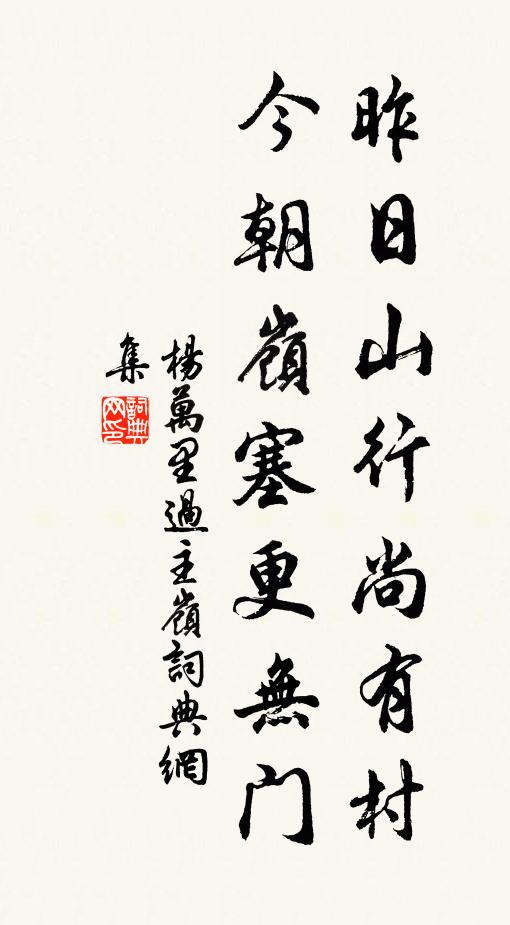 昨日山行尚有村
今朝嶺塞更無门
楊萬里過主嶺詞典網
集
詞典网印